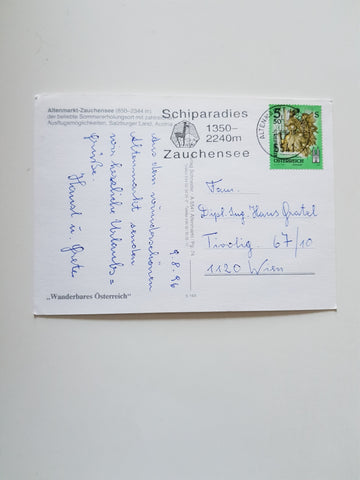 Altenmarkt-Zauchensee (850–2344 m)
der beliebte Sommererholungsort mit
Ausflugsmöglichkeiten, Salzburger Land, Austria
Schiparadies
1350–
2240m
Zauchensee
ALTENM
5
S
ÖSTERREICH
9.8.96
Aus dem wunderschönen
Altenmarkt senden
wir herzliche Urlaubs=
Grüße.
Hansl u Grete
Fam.
Dipl. Ing. Hans
67/10
1120 Wien
„Wanderbares Österreich"